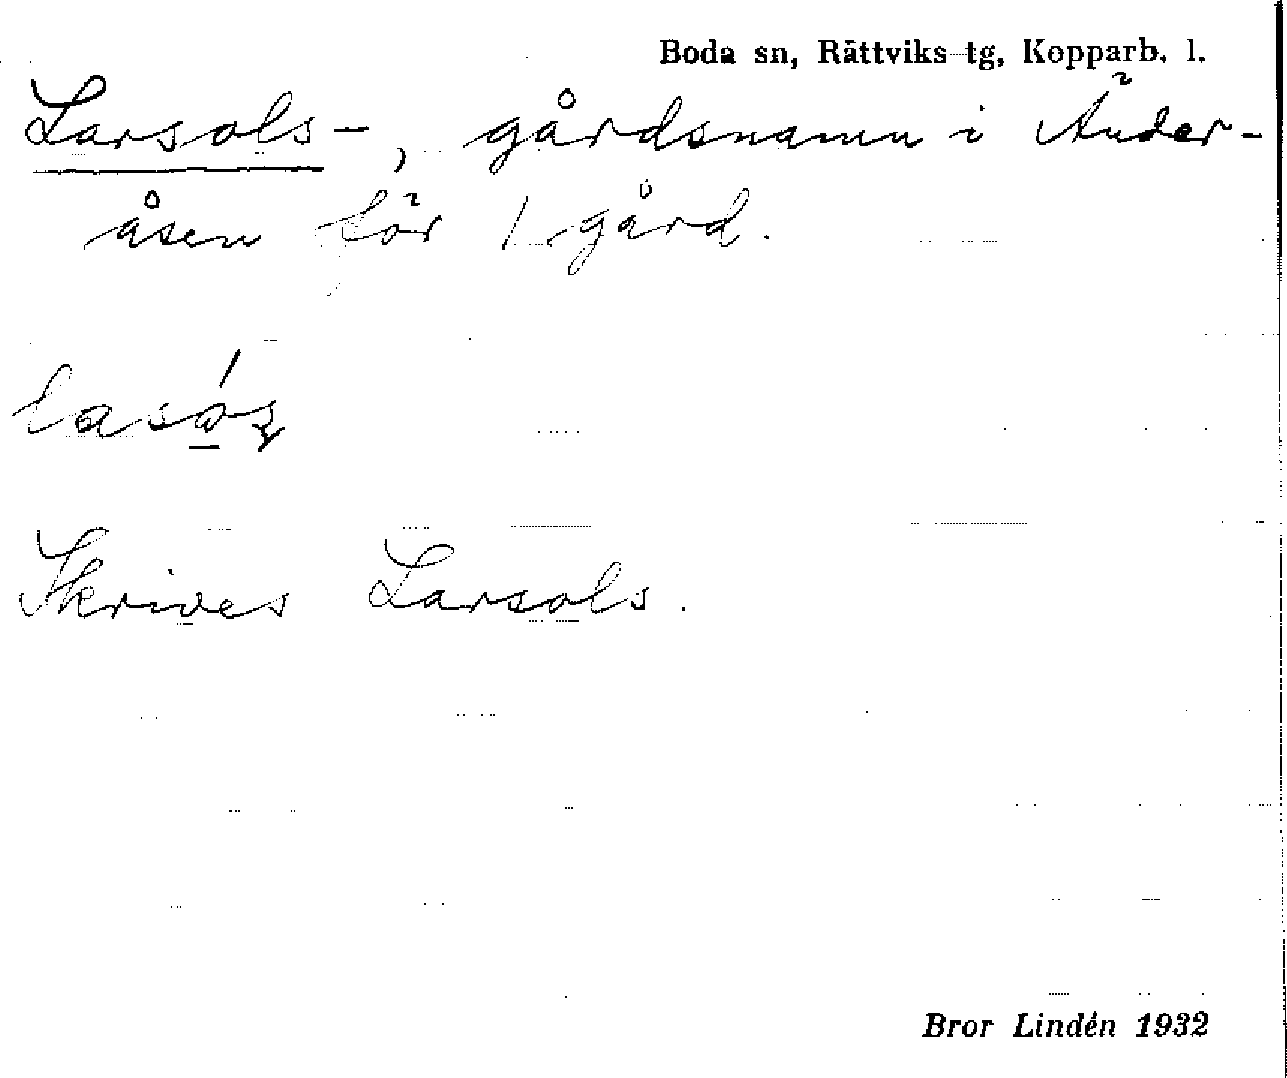 Boda sn, Rättviks tg, Kopparb. l.
Larsols-, gårdsnamn i Änder-
åsen för 1 gård.
Skrives Larsols.
Bror Lindén 1932